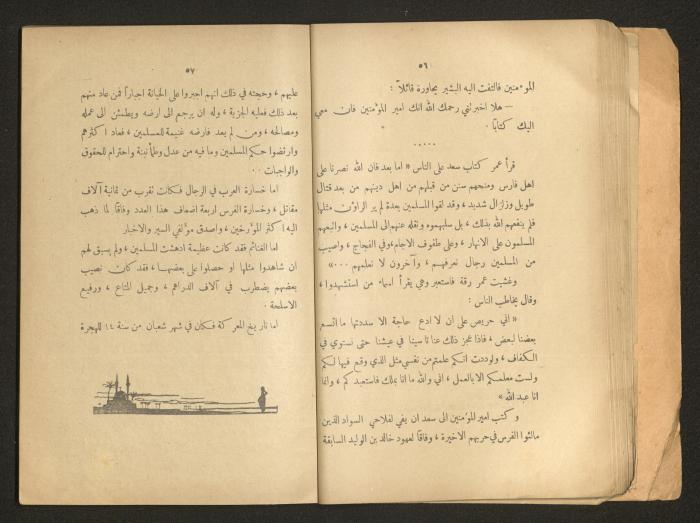 ٥٦
المؤمنين فالتفت اليه البشير يجاوره قائلاً :
— هلا اخبرتني رحمك الله انك امير المؤمنين فان معي
اليك كتاباً .
.....
قرأ عمر كتاب سعد على الناس « اما بعد فان الله نصرنا على
اهل فارس ومنحهم سنن من قبلهم من اهل دينهم من بعد قتال
طويل وزلزال شديد ، وقد لقوا المسلمين بعدة لم ير الراؤن مثلها
فلم ينفعهم الله بذلك ، بل سلبهموه ونقله عنهم الى المسلمين ، واتبعهم
المسلمون على الانهار ، وعلى طفوف الاجام ، وفي الفجاج ، واصيب
من المسلمين رجال نعرفهم ، وآخرون لا نعلمهم ... »
وغشيت عمر رقة فاستعبر وهي يقرأ اسماء من استشهدوا ،
وقال يخاطب الناس :
« اني حريص على ان لا ادع حاجة الا سددتها ما اتسع
بعضنا لبعض ، فاذا عجز ذلك عنا تأسينا في عيشنا حتى نستوي في
الكفاف ، ولوددت انكم علمتم من نفسي مثل الذي وقع فيها لكم
ولست معلمكم الا بالعمل ، اني والله ما انا بملك فاستعبد كم ، وانما
انا عبد الله »
وكتب امير المؤمنين الى سعد ان يفي لفلاحي السواد الذين
مالئوا الفرس في حربهم الاخيرة ، وفاقاً لعهود خالد بن الوليد السابقة
٥٧
عليهم ، وحجته في ذلك انهم اجبروا على الخيانة اجباراً فمن عاد منهم
بعد ذلك فعليه الجزية ، وله ان يرجع الى ارضه ويطمئن الى عمله
ومصالحه ، ومن لم يعد فارضه غنيمة للمسلمين ، فعاد اكثرهم
وارتضوا حكم المسلمين وما فيه من عدل وطمأنينة واحترام للحقوق
والواجبات ..
اما خسارة العرب في الرجال فكانت تقرب من ثمانية آلاف
مقاتل ، وخسارة الفرس اربعة اضعاف هذا العدد وفاقاً لما ذهب
اليه اكثر المؤرخين ، واصدق مؤلفي السير والاخبار
اما الغنائم فقد كانت عظيمة ادهشت المسلمين ، ولم يسبق لهم
ان شاهدوا مثلها او حصلوا على بعضها ، فقد كان نصيب
بعضهم يضطرب في آلاف الدراهم ، وجميل المتاع ، ورفيع
الاسلحة .
اما تاريخ المعركة فكان في شهر شعبان من سنة ١٤ للهجرة